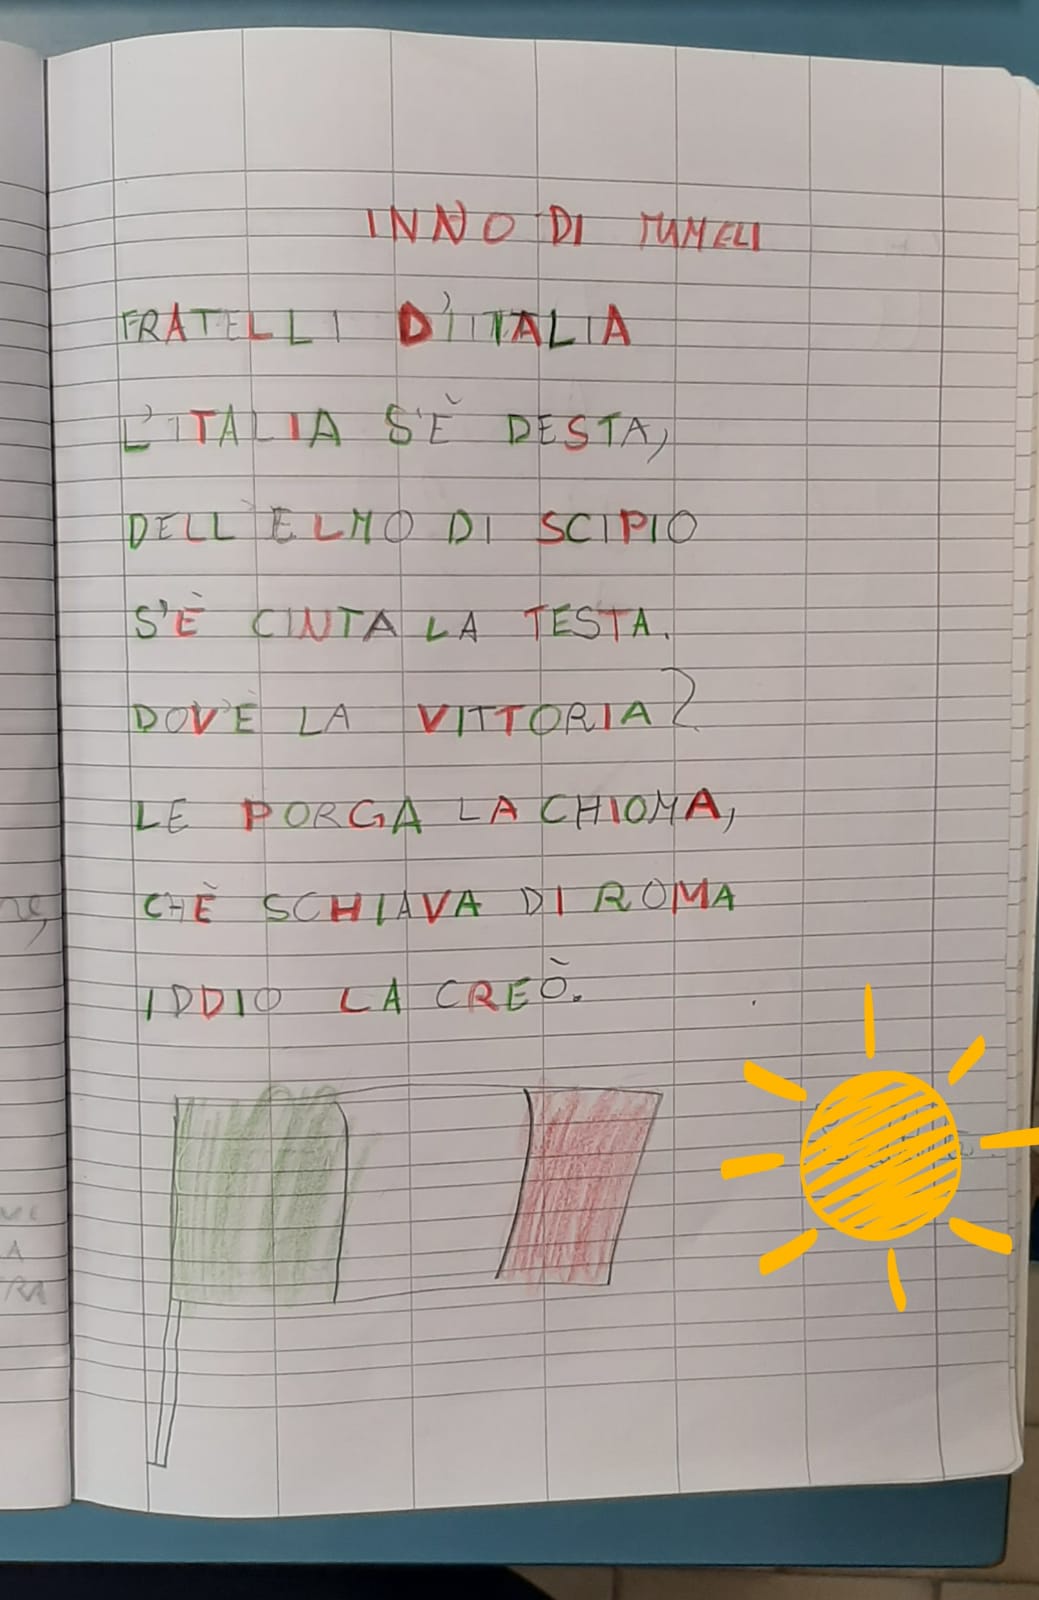 INNO DI MAMELI
FRATELLI D'ITALIA
L'ITALIA S'È DESTA,
DELL'ELMO DI SCIPIO
S'È CINTA LA TESTA.
DOV'È LA VITTORIA?
LE PORGA LA CHIOMA,
CHÈ SCHIAVA DI ROMA
IDDIO LA CREÒ.
RA